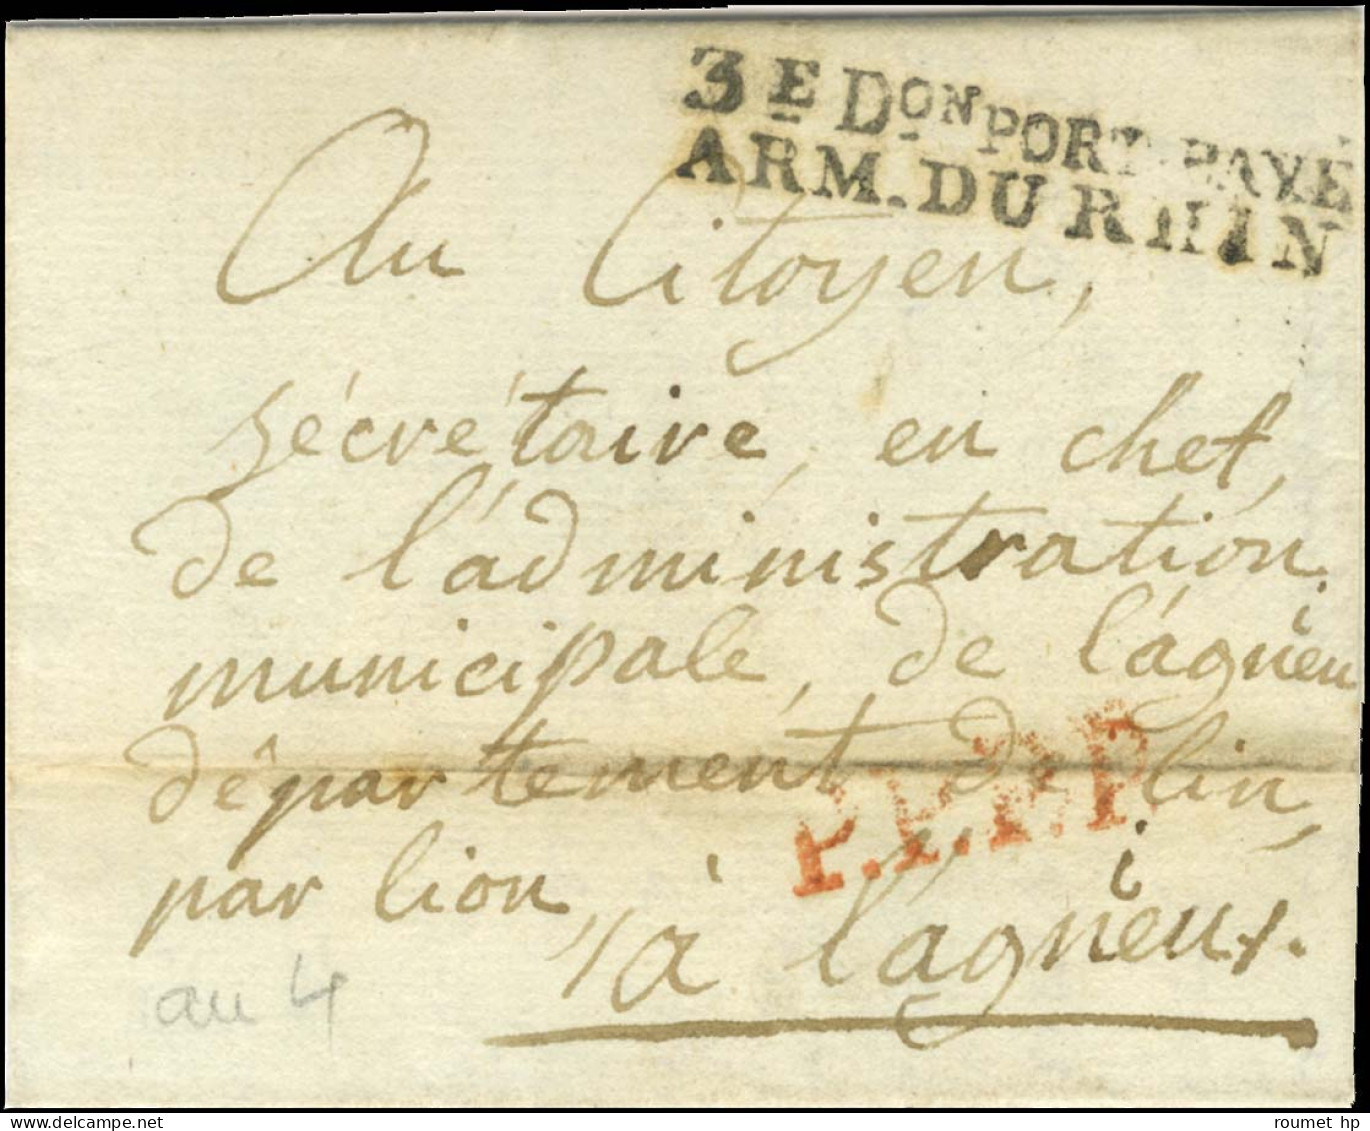 3E DON PORT PAYÉ
ARM. DU RHIN
Au Citoyen,
sécrétaire, en chef,
de l'administration
municipale, de l'agnieu
département de lin,
par lion,
P.P.P.P.
à lagnieu.
an 4
roumet hp